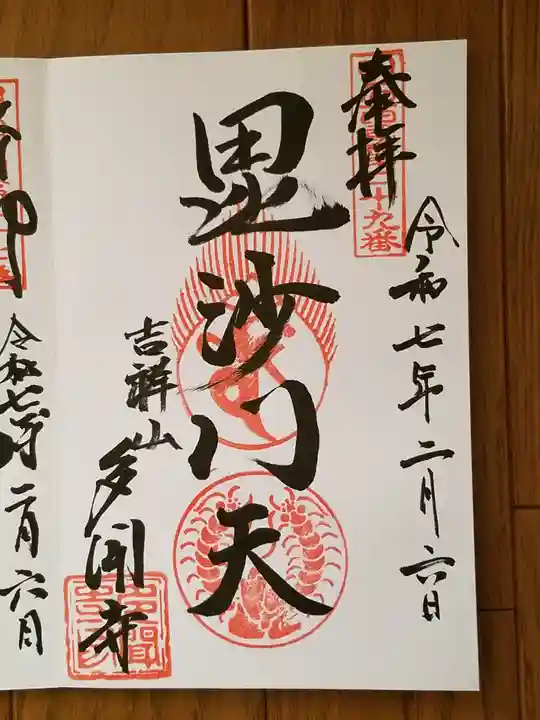 奉拝
十九番
令和七年二月六日
毘沙門天
吉祥山
多聞寺
令和七年二月六日